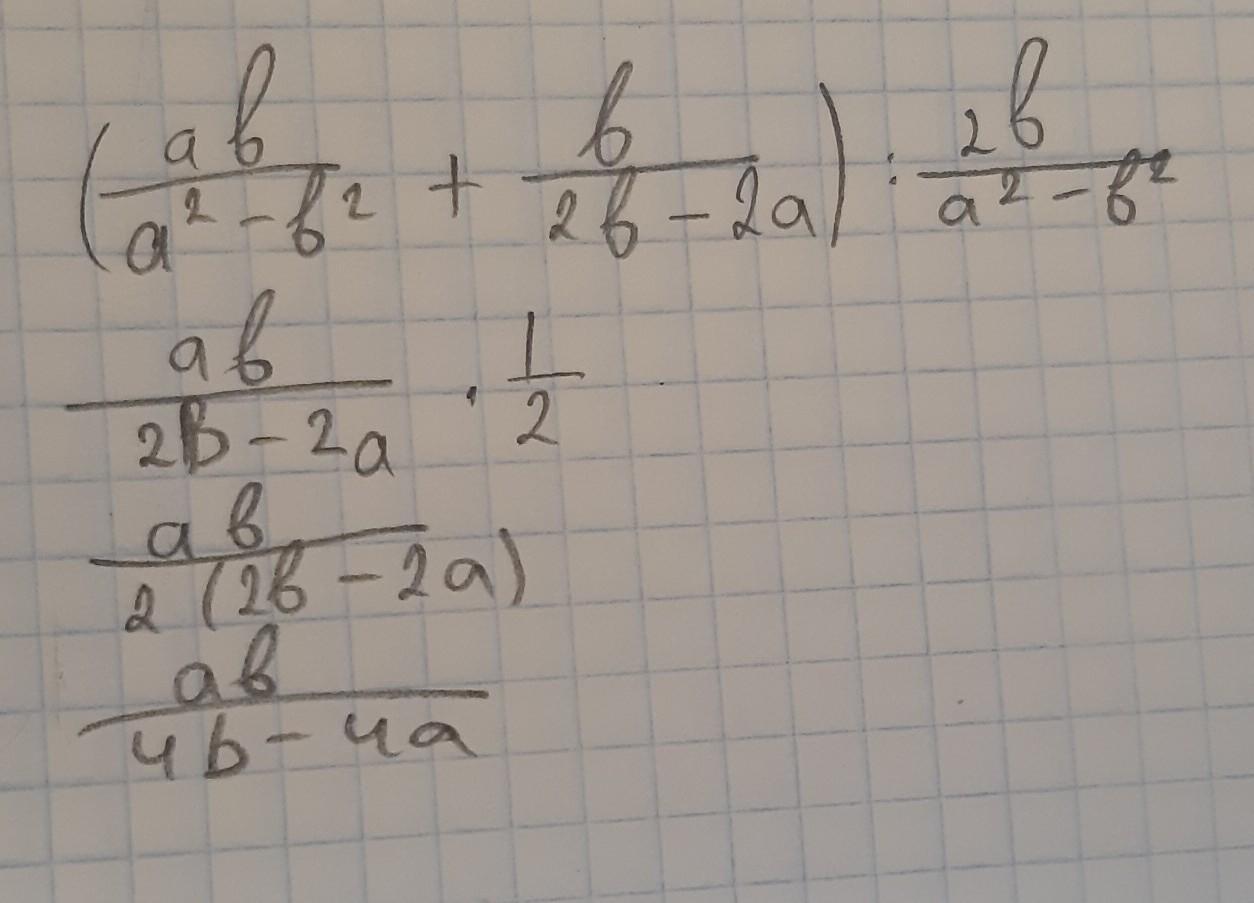 (ab/(a² - b²) + b/(2b - 2a)) : 2b/(a² - b²)
ab/(2b - 2a) · 1/2
ab/(2(2b - 2a))
ab/(4b - 4a)